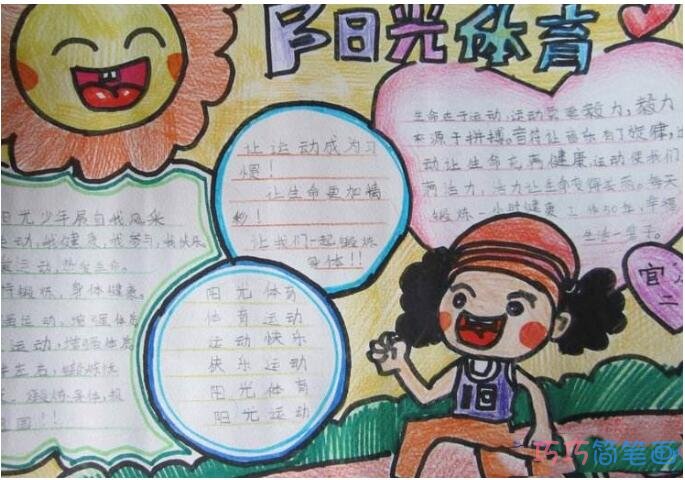 阳光体育
让运动成为习
惯!
让生命更加精
彩!
让我们一起锻炼
身体!!
生命在于运动,运动需要毅力,毅力
来源于拼搏。音符让音乐有了旋律,
动让生命充满健康运动使我们
满活力,活力让生命变得美丽。每天
锻炼一小时健康工作50年,幸福
生活一辈子。
阳光少年展自我风采
运动,我健康,我参与,我快乐
运动,热爱生命。
持锻炼,身体健康。
运动,增强体质
运动,增强体质
锻炼
锻炼身体,报
国!!
阳光体育
体育运动
运动快乐
快乐运动
阳光体育
阳光运动
宜
二
18
巧巧简笔画